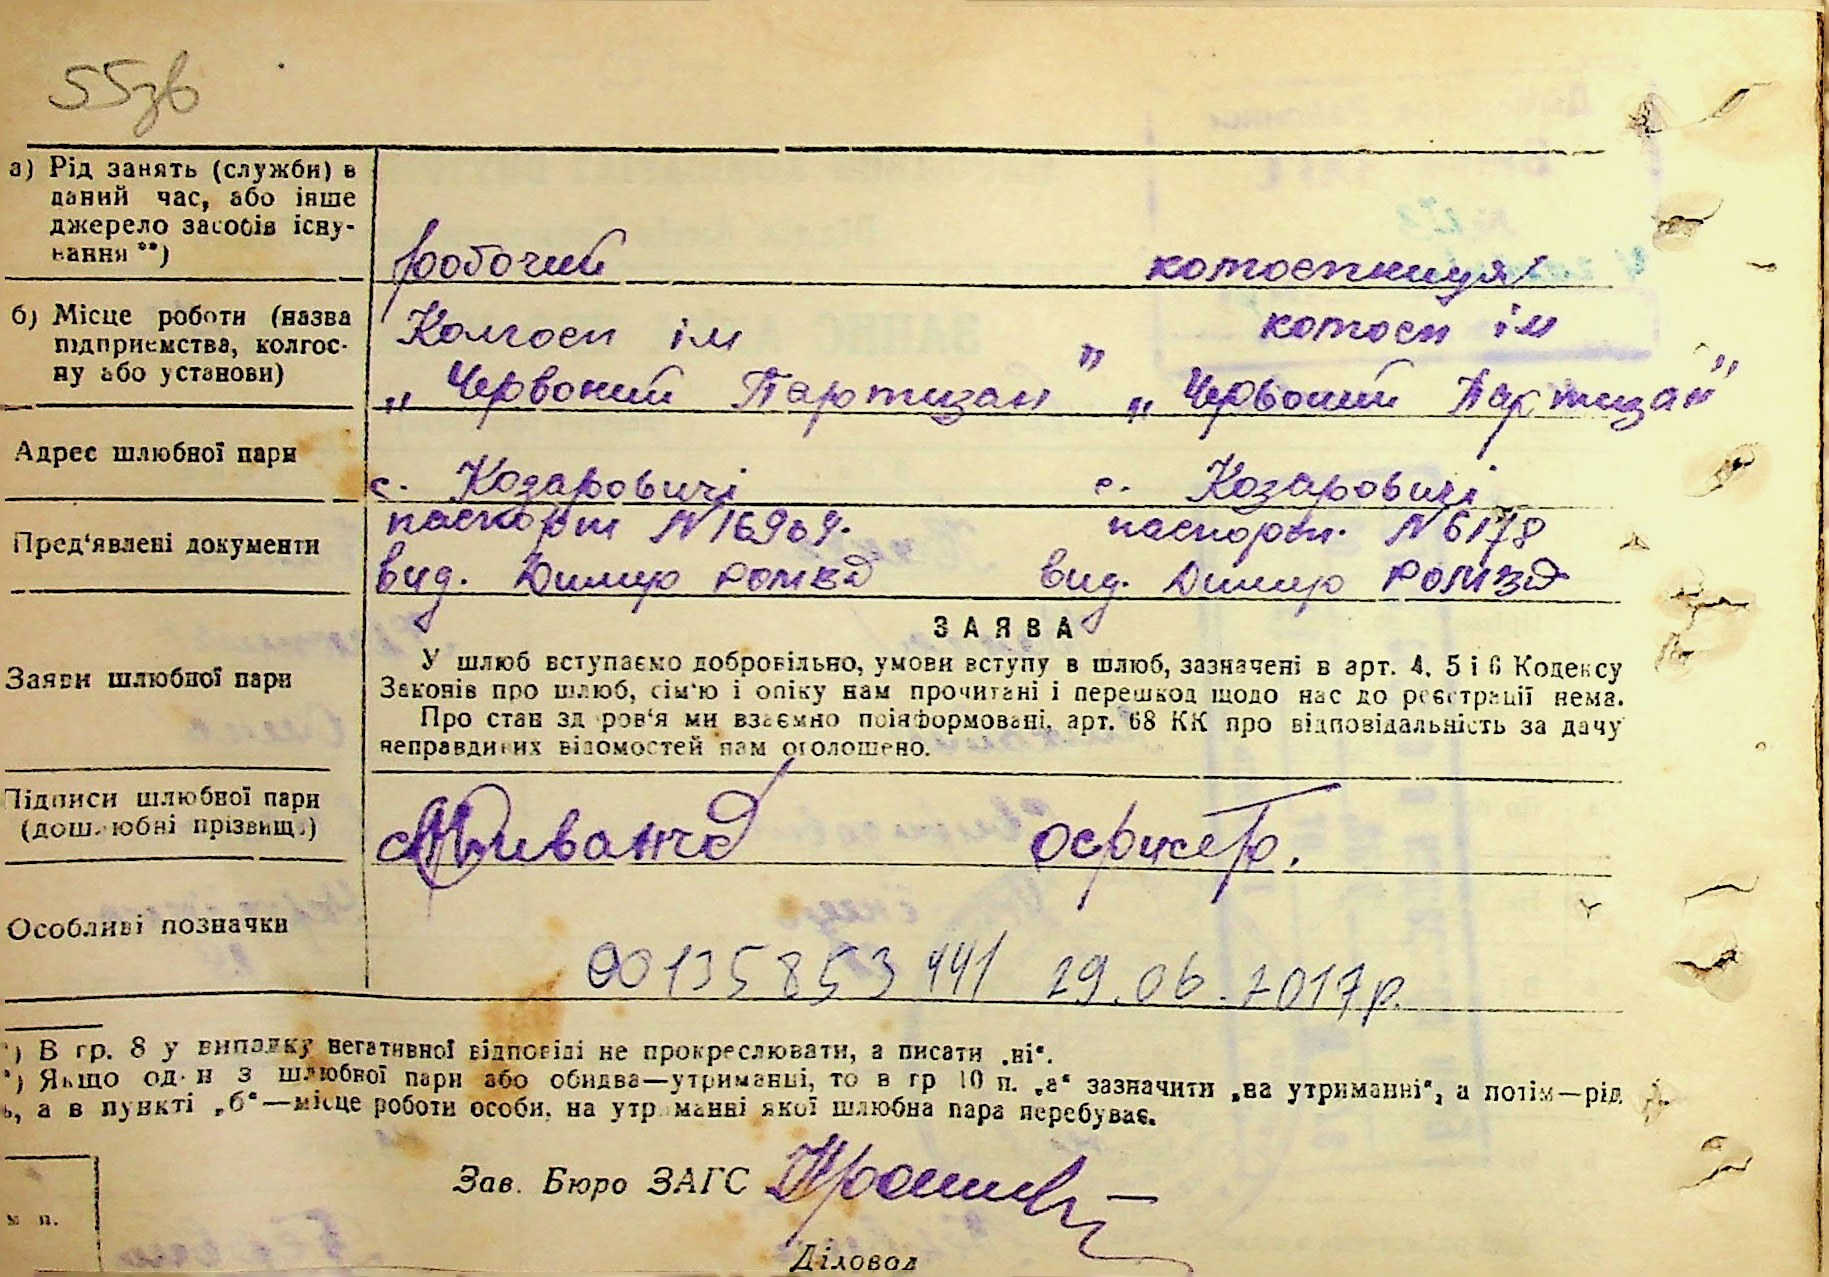 55зв
а) Рід занять (служби) в
даний час, або інше
джерело засобів існу-
вання **)
робочий колгоспниця
б) Місце роботи (назва
підприємства, колгос-
пу або установи)
Колгосп ім колгосп ім
„ Червоний Партизан " „ Червоний Партизан "
Адрес шлюбної пари
с. Козаровичі с. Козаровичі
Пред'явлені документи
паспорт N 16969. паспорт. N 6178
вид. Димир вид. Димир
ЗАЯВА
Заяви шлюбної пари
У шлюб вступаємо добровільно, умови вступу в шлюб, зазначені в арт. 4, 5 і 6 Кодексу
Законів про шлюб, сім'ю і опіку нам прочитані і перешкод щодо нас до реєстрації нема.
Про стан здоров'я ми взаємно поінформовані, арт. 68 КК про відповідальність за дачу
неправдивих відомостей нам оголошено.
Підписи шлюбної пари
(дошлюбні прізвищ.)
Особливі позначки
00135853441 29.06.2017р.
*) В гр. 8 у випадку негативної відповіді не прокреслювати, а писати „ні“.
*) Якщо один з шлюбної пари або обидва—утриманці, то в гр 10 п. „а“ зазначити „на утриманні“, а потім—рід
ь, а в пункті „б“—місце роботи особи, на утриманні якої шлюбна пара перебуває.
Зав. Бюро ЗАГС
м п.
Діловод